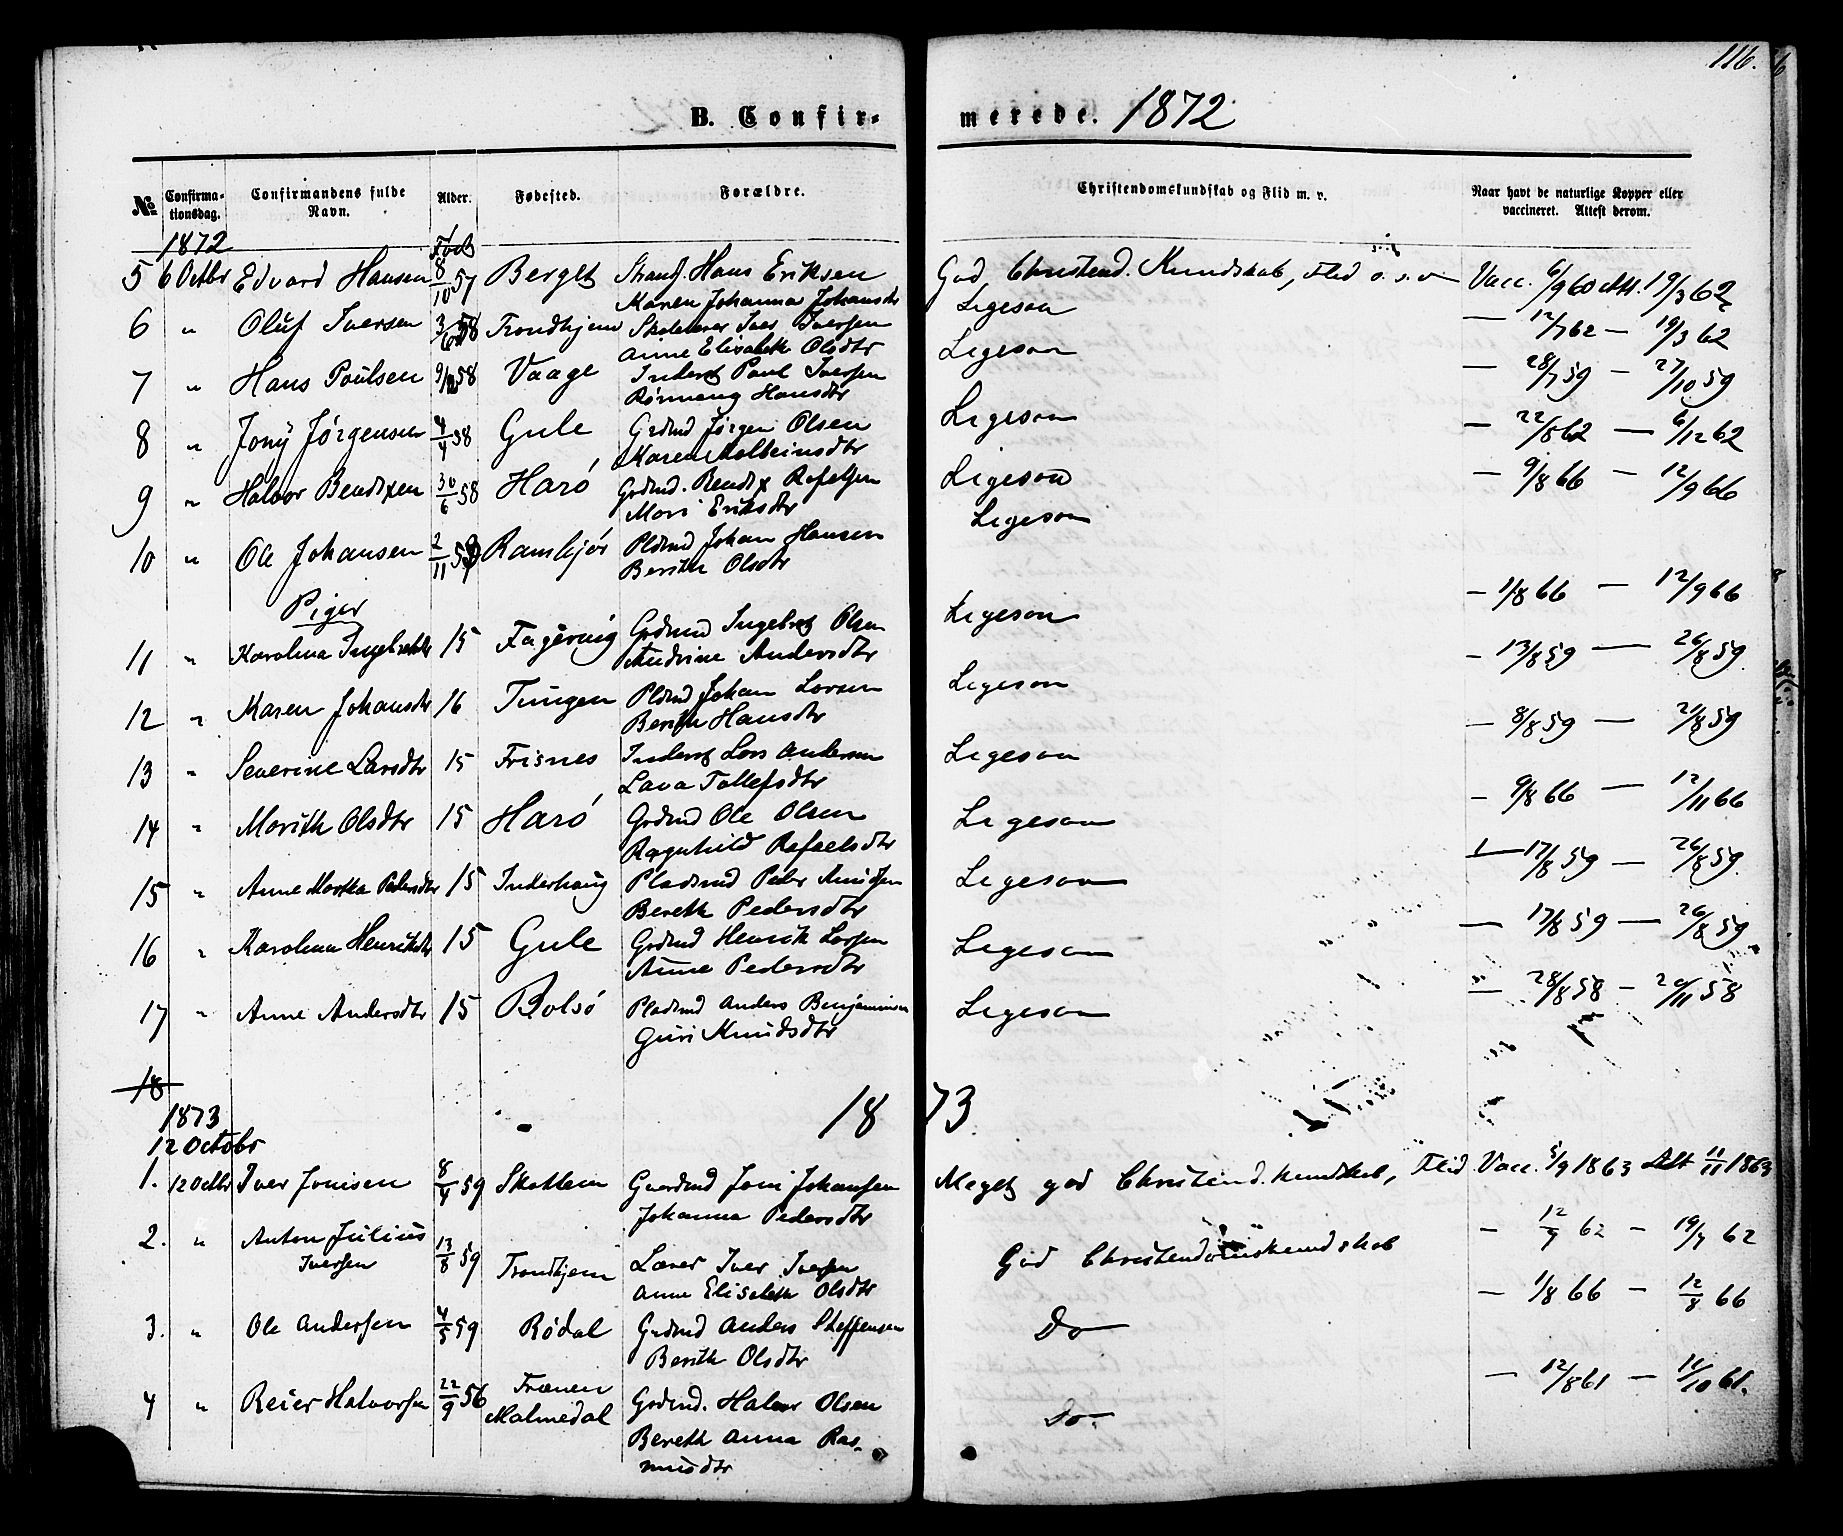 116.
B. Confir- merede. 1872
№ Confirma-tionsdag. Confirmandens fulde Navn. Alder. Fødested. Forældre. Christendomskundskab og Flid m. v. Naar havt de naturlige Kopper eller vaccineret. Attest derom.
1872 Født
5 6 Octbr Edvard Hansen 8/10 57 Berget Strand. Hans Eriksen God Christend. Kundskab, Flid o.s.v. Vacc. 6/9 60 Att. 19/3 62
Maren Johanna Johansdtr
6 " Oluf Iversen 58 Trondhjem Skolelærer Iver Iversen Ligesom — 12/7 62 — 19/3 62
Anne Elisabeth Olsdtr
7 " Hans Poulsen 58 Vaage Inderst Paul Iversen Ligesom — 28/7 59 — 27/10 59
Hansdtr
8 " Jony Jørgensen 4/4 58 Gule Grdmd Jørgen Olsen Ligesom — 22/8 62 — 6/12 62
Maren
9 " Halvor Bendixen 30/6 58 Harö Grdmd. Bendix Rafelsen Ligesom — 9/8 66 — 12/9 66
Mari Eriksdtr
10 " Ole Johansen 2/11 Ramskjør Pldmd Johan Hansen Ligesom
Berith Olsdtr
Piger
11 " Karolina Ingebretsdtr 15 Fagervig Grdmd Ingebret Olsen Ligesom — 1/8 66 — 12/9 66
Andrine Andersdtr
12 " Maren Johansdtr 16 Tungen Pldmd Johan Larsen Ligesom — 13/8 59 — 26/8 59
Berith Hansdtr
13 " Severine Larsdtr 15 Frisnes Inderst Lars Andersen Ligesom — 8/8 59 — 21/8 59
Lava Tollefsdtr
14 " Marith Olsdtr 15 Harö Grdmd Ole Olsen Ligesom — 9/8 66 — 12/11 66
Ragnhild Rafaelsdtr
15 " Anne Martha Pedersdtr 15 Inderhaug Pladsmd Peder Knudsen Ligesom — 17/8 59 — 26/8 59
Bereth Pedersdtr
16 " Karolina Henriksdtr 15 Gule Grdmd Henrik Larsen Ligesom — 17/8 59 — 26/8 59
Anne Pedersdtr
17 " Anne Andersdtr 15 Bolsö Pladsmd Anders Benjaminsen Ligesom — 28/8 58 — 20/11 58
Guri Knudsdtr
18
1873 1873
12 Octobr
1. 12 Octbr Iver Jonisen 8/4 59 Skotlem Gaardmd Joni Johansen Meget god Christend. kundskab, Flid Vacc. 5/9 1863 Att 11/11 1863
Johanna Pedersdtr
2. " Anton Julius Iversen 13/8 59 Trondhjem Lærer Iver Iversen God Christendomskundskab — 12/7 62 — 19/7 62
Anne Elisabeth Olsdtr
3. " Ole Andersen 4/5 59 Rødal Grdmd Anders Steffensen Do — 1/8 66 — 12/8 66
Berith Olsdtr
4 " Reier Halvorsen 22/9 56 Frænen Malmedal Grdmd. Halvor Olsen Do. — 12/8 61 — 11/10 61.
Bereth Anna Ras-
musdtr